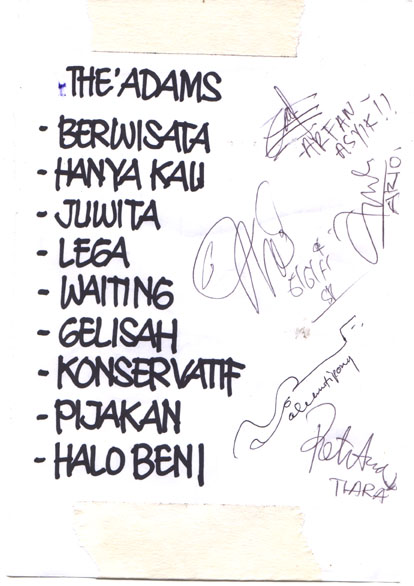 THE'ADAMS
- BERWISATA
- HANYA KAU
- JUWITA
- LEGA
- WAITING
- GELISAH
- KONSERVATIF
- PIJAKAN
- HALO BENI
- ARFAN -
ASYIK!!
ARIO
GIGIH
TIARA